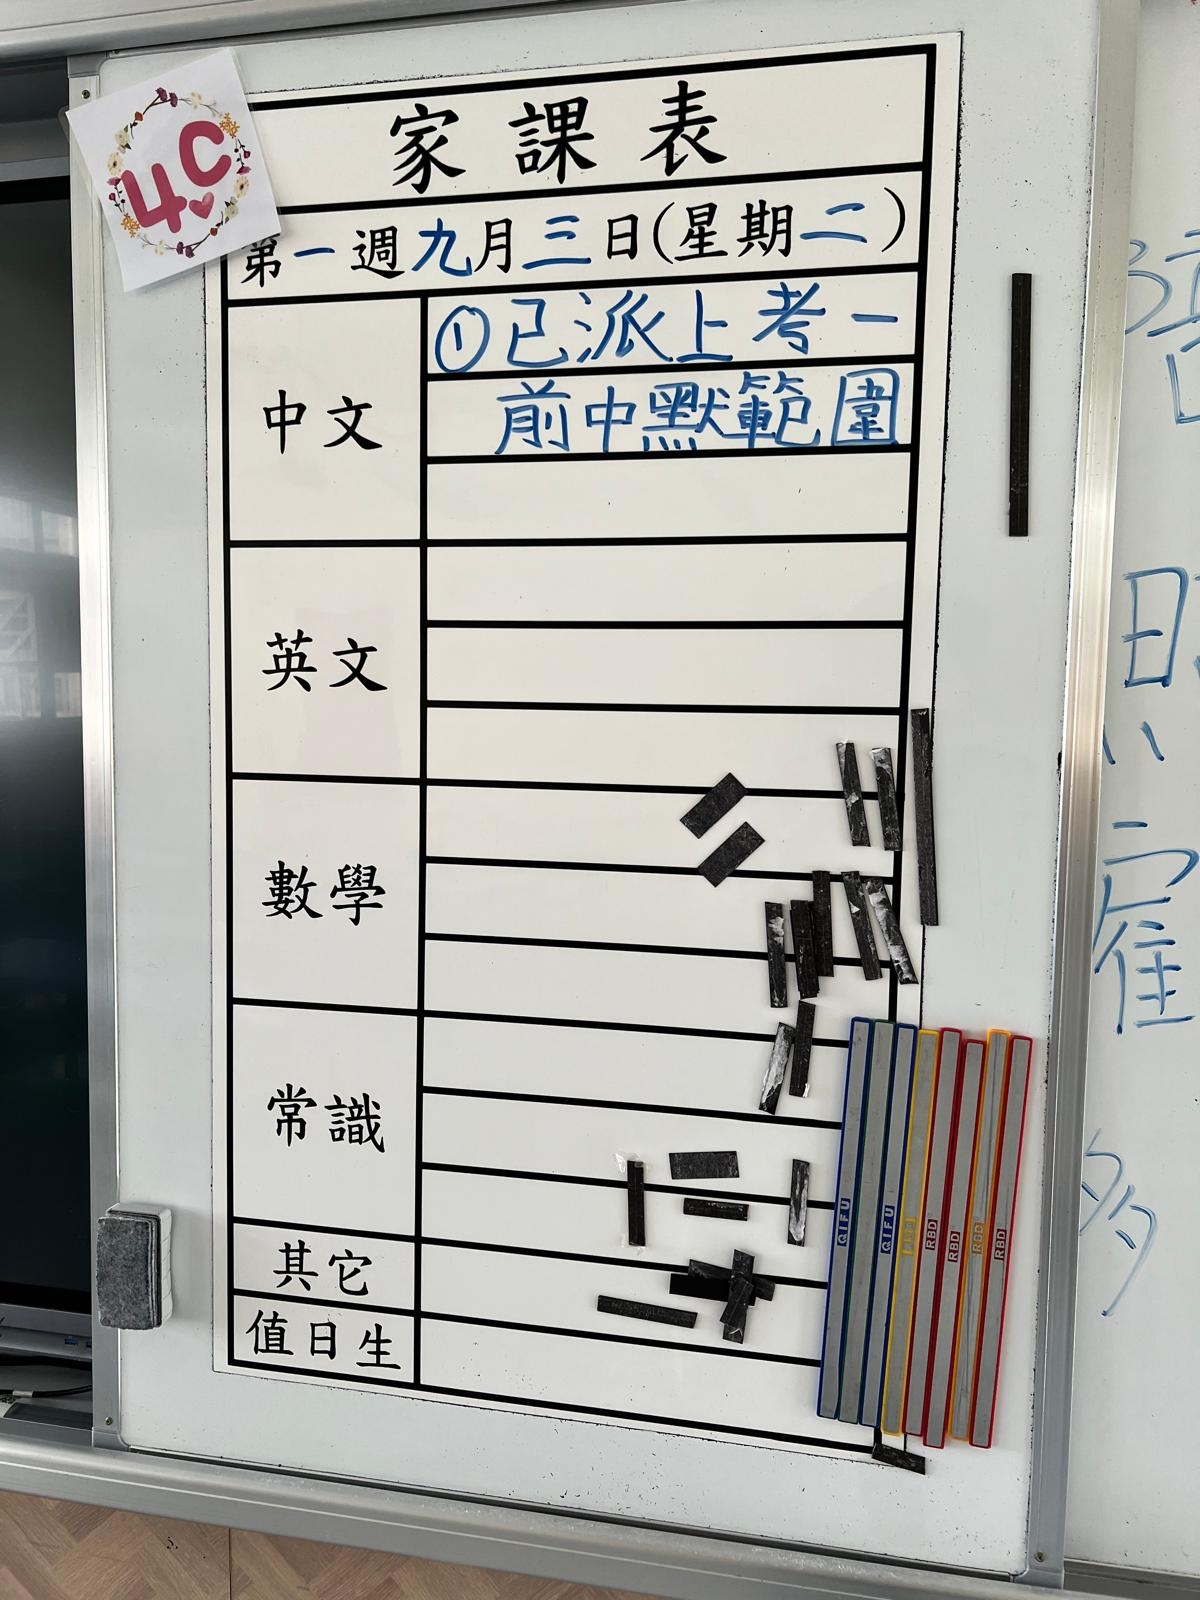 4C
家課表
第一週九月三日(星期二)
中文
①已派上考一
前中默範圍
英文
數學
常識
其它
值日生
QIFU
QIFU
RBD
RBD
RBD
RBD